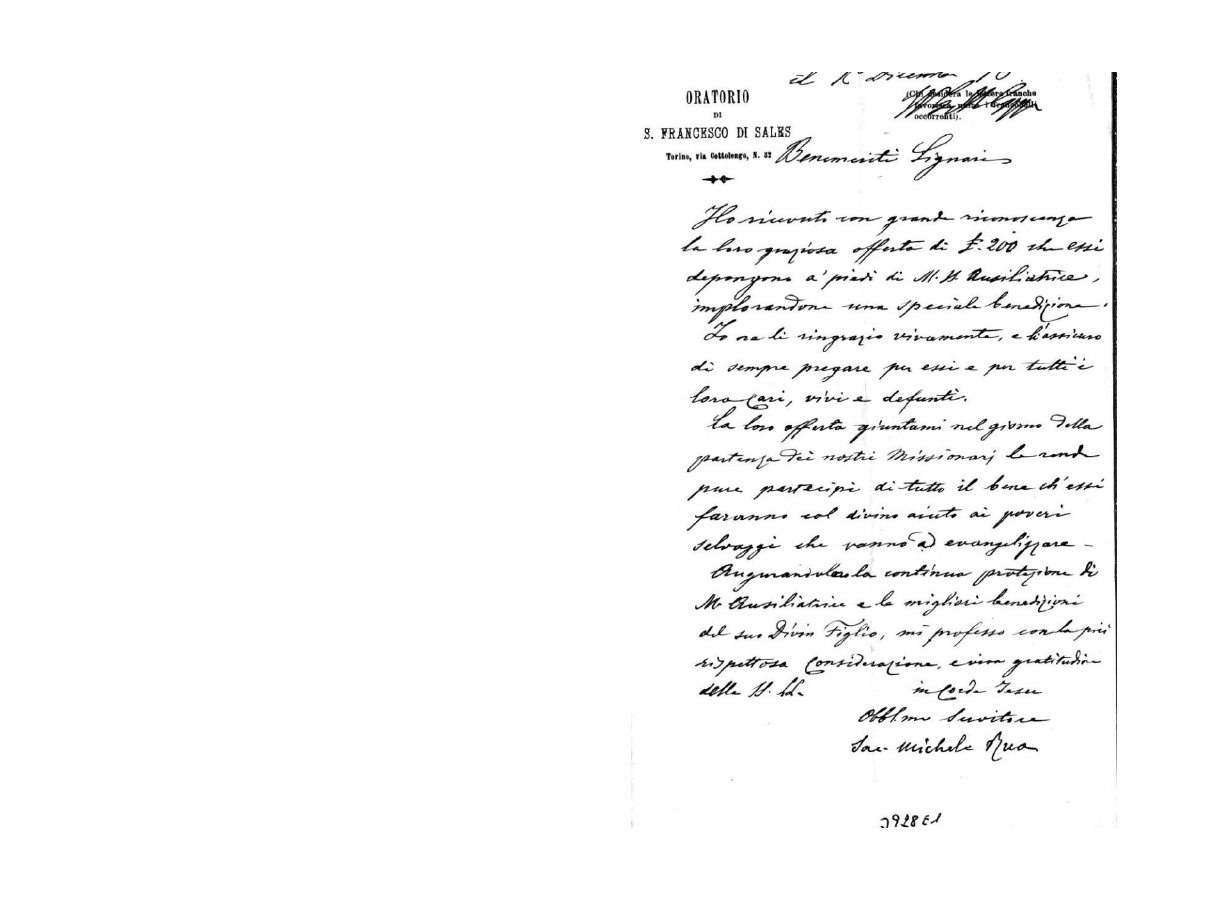 il Dicembre
ORATORIO
DI
S. FRANCESCO DI SALES
Torino, via Cottolengo, N. 32
(Chi desidera le lettere franche
occorrenti).
Benemeriti Signori
Ho ricevuto con grande riconoscenza
la loro graziosa offerta di £. 200 che essi
depongono a' piedi di M. SS. Ausiliatrice,
implorandone una speciale benedizione.
Io ne li ringrazio vivamente, e li assicuro
di sempre pregare per essi e per tutti i
loro Cari, vivi e defunti.
La loro offerta giuntami nel giorno della
partenza dei nostri Missionarj le rende
pure partecipi di tutto il bene ch'essi
faranno col divino aiuto ai poveri
selvaggi che vanno ad evangelizzare -
Augurandole la continua protezione di
M. Ausiliatrice e le migliori benedizioni
del suo Divin Figlio, mi professo con la più
rispettosa Considerazione, e viva gratitudine
delle SS. LL.
in Corde Jesu
Obbl.mo Servitore
Sac. Michele Rua
3928E1